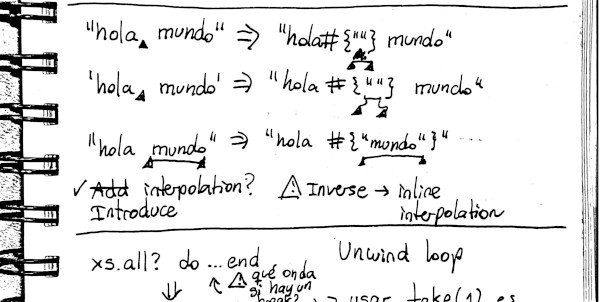 "hola mundo" ⇒ "hola#{""} mundo"
'hola mundo' ⇒ "hola #{""} mundo"
"hola mundo" ⇒ "hola #{"mundo"}" ...
✓ Add interpolation? ⚠ Inverse → inline
Introduce interpolation
xs.all? do ... end Unwind loop
⚠ qué onda
si hay un